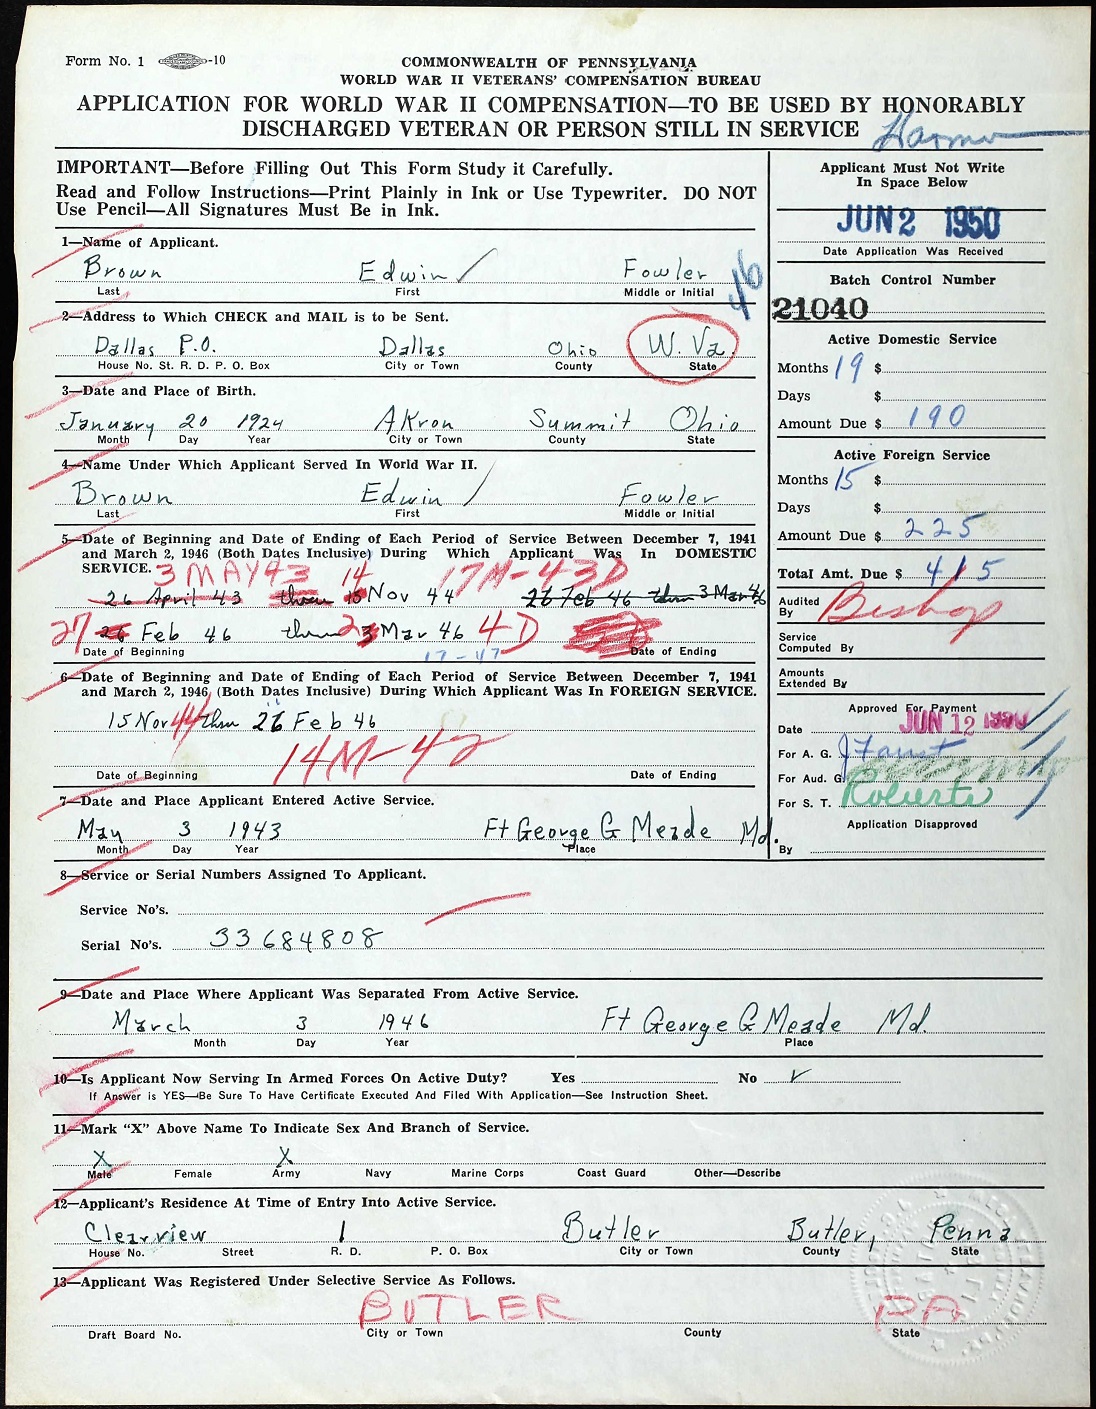 Form No. 1 -10
COMMONWEALTH OF PENNSYLVANIA
WORLD WAR II VETERANS' COMPENSATION BUREAU
APPLICATION FOR WORLD WAR II COMPENSATION—TO BE USED BY HONORABLY
DISCHARGED VETERAN OR PERSON STILL IN SERVICE
IMPORTANT—Before Filling Out This Form Study it Carefully.
Read and Follow Instructions—Print Plainly in Ink or Use Typewriter. DO NOT
Use Pencil—All Signatures Must Be in Ink.
1—Name of Applicant.
Brown Edwin Fowler
Last First Middle or Initial
46
2—Address to Which CHECK and MAIL is to be Sent.
Dallas P.O. Dallas Ohio W. Va.
House No. St. R. D. P. O. Box City or Town County State
3—Date and Place of Birth.
January 20 1924 Akron Summit Ohio
Month Day Year City or Town County State
4—Name Under Which Applicant Served In World War II.
Brown Edwin Fowler
Last First Middle or Initial
5—Date of Beginning and Date of Ending of Each Period of Service Between December 7, 1941
and March 2, 1946 (Both Dates Inclusive) During Which Applicant Was In DOMESTIC
SERVICE.
3 MAY 43 14 17M-43D
26 April 43 thru 15 Nov 44 26 Feb 46 thru 3 Mar 46
27 26 Feb 46 thru 2 3 Mar 46 4D
Date of Beginning 17-47 Date of Ending
6—Date of Beginning and Date of Ending of Each Period of Service Between December 7, 1941
and March 2, 1946 (Both Dates Inclusive) During Which Applicant Was In FOREIGN SERVICE.
15 Nov 44 thru 26 Feb 46
14M-42
Date of Beginning Date of Ending
7—Date and Place Applicant Entered Active Service.
May 3 1943 Ft George G Meade Md.
Month Day Year Place
Applicant Must Not Write
In Space Below
JUN 2 1950
Date Application Was Received
Batch Control Number
21040
Active Domestic Service
Months 19 $
Days $
Amount Due $ 190
Active Foreign Service
Months 15 $
Days $
Amount Due $ 225
Total Amt. Due $ 415
Audited
By Bishop
Service
Computed By
Amounts
Extended By
Approved For Payment
Date JUN 12 1950
For A. G. J Faust
For Aud. G.
For S. T. Roberts
Application Disapproved
By
8—Service or Serial Numbers Assigned To Applicant.
Service No's.
Serial No's. 33684808
9—Date and Place Where Applicant Was Separated From Active Service.
March 3 1946 Ft George G Meade Md.
Month Day Year Place
10—Is Applicant Now Serving In Armed Forces On Active Duty? Yes No ✓
If Answer is YES—Be Sure To Have Certificate Executed And Filed With Application—See Instruction Sheet.
11—Mark "X" Above Name To Indicate Sex And Branch of Service.
X X
Male Female Army Navy Marine Corps Coast Guard Other—Describe
12—Applicant's Residence At Time of Entry Into Active Service.
Clearview 1 Butler Butler, Penna
House No. Street R. D. P. O. Box City or Town County State
13—Applicant Was Registered Under Selective Service As Follows.
BUTLER PA
Draft Board No. City or Town County State